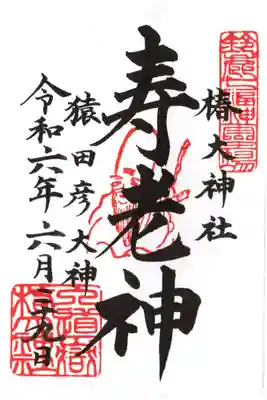 椿大神社
寿老神
猿田彦大神
令和六年六月二十九日